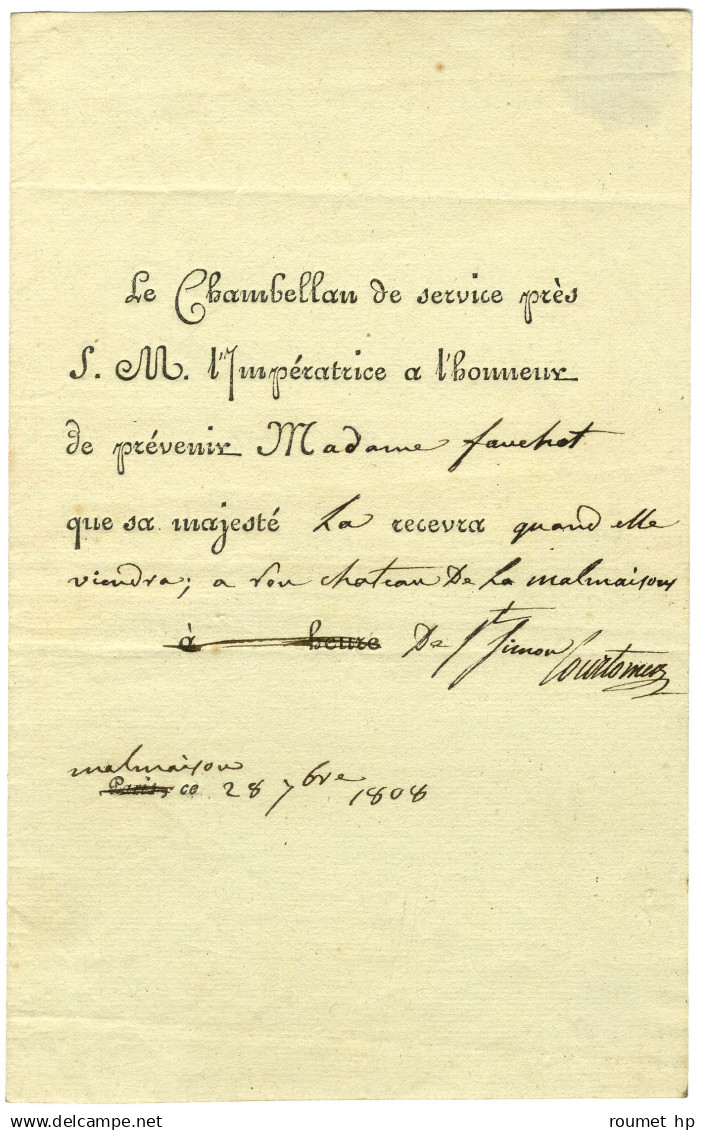 Le Chambellan de service près
S. M. l'Impératrice a l'honneur
de prévenir Madame fauchet
que sa majesté la recevra quand elle
viendra; a son chateau De la malmaison
à heure De St Simon Courtomer
malmaison
Paris, ce 28 7bre 1808
www.delcampe.net
roumet hp